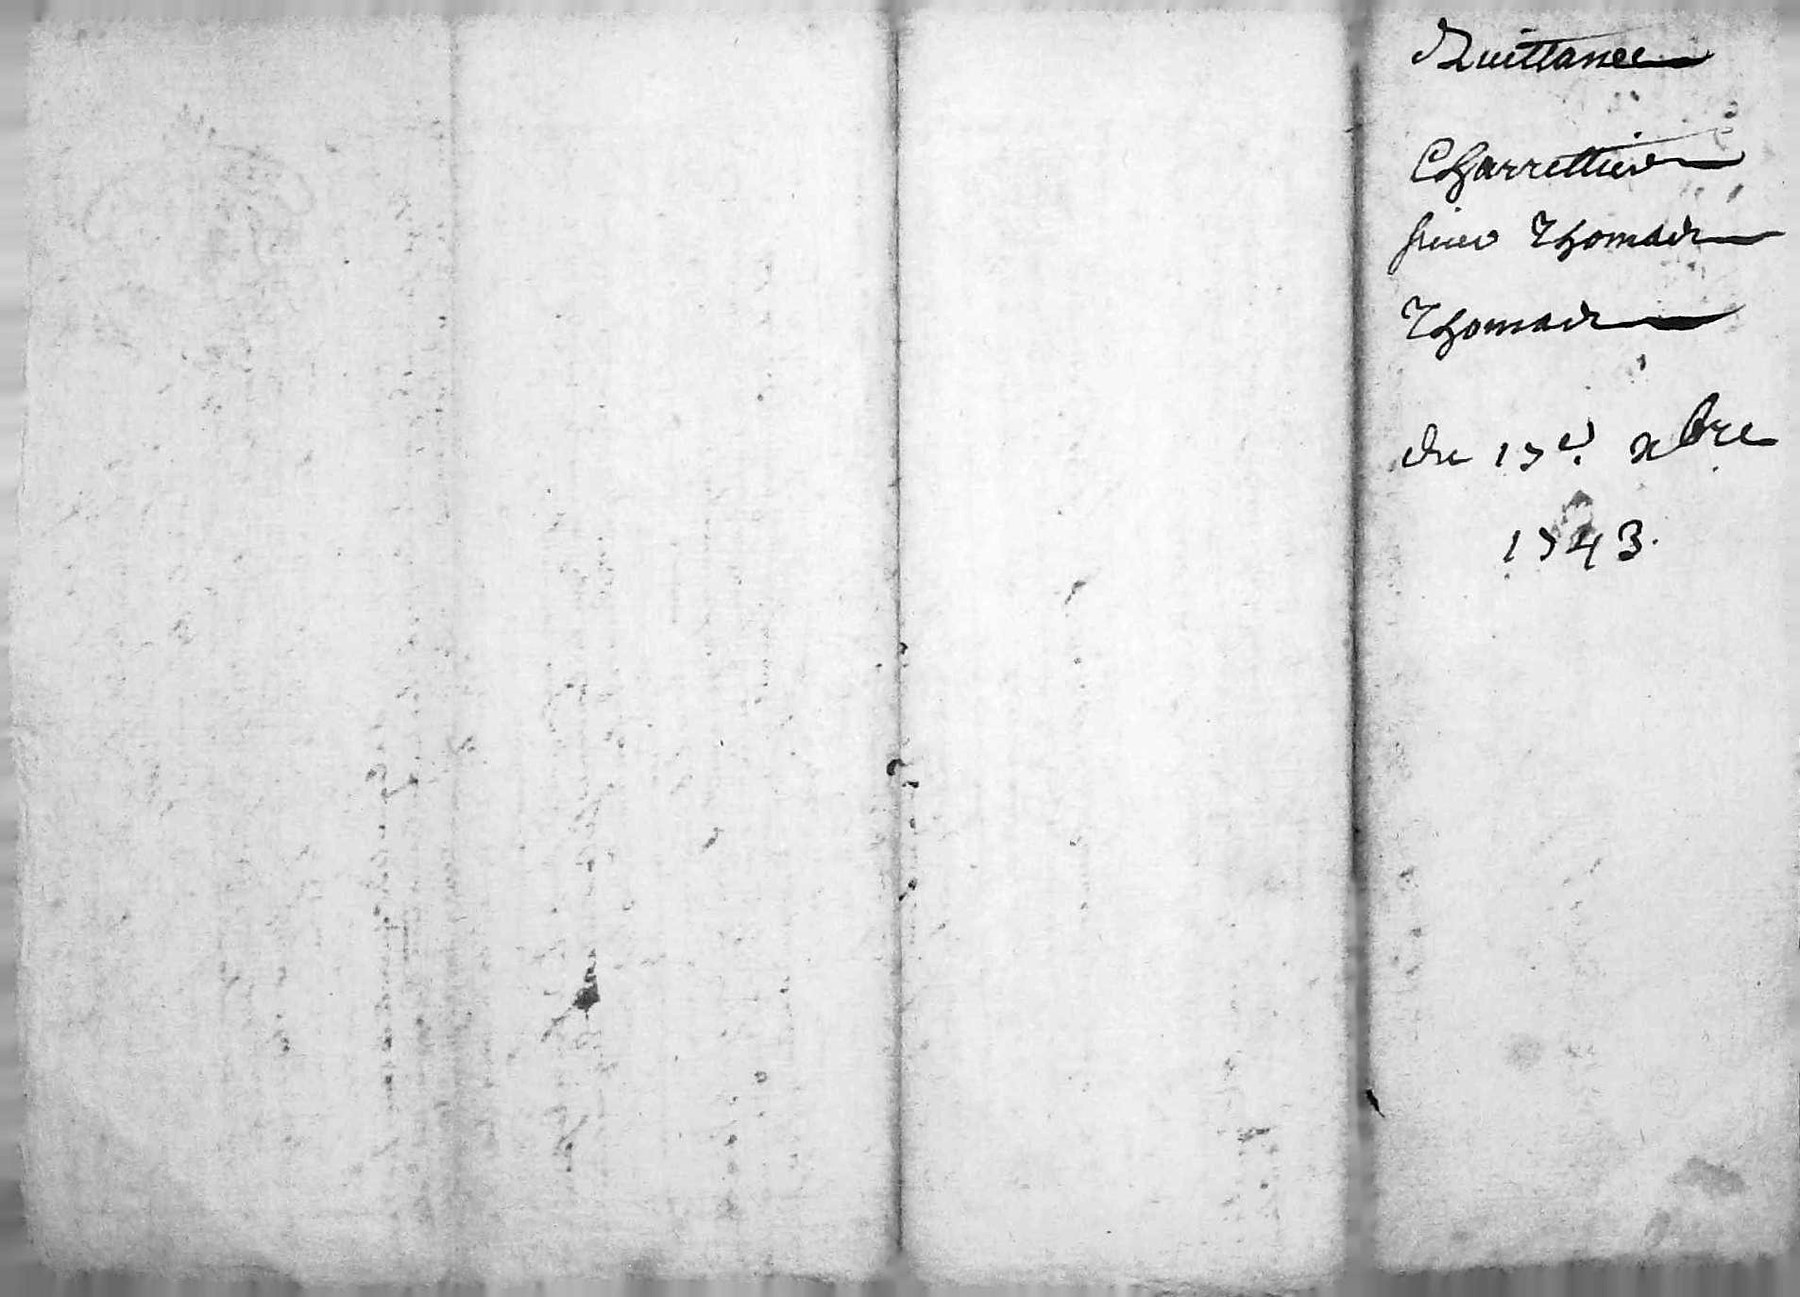 Quittance
Charrettier
sieur Thomas
Thomas
du 17e. xbre
1743.